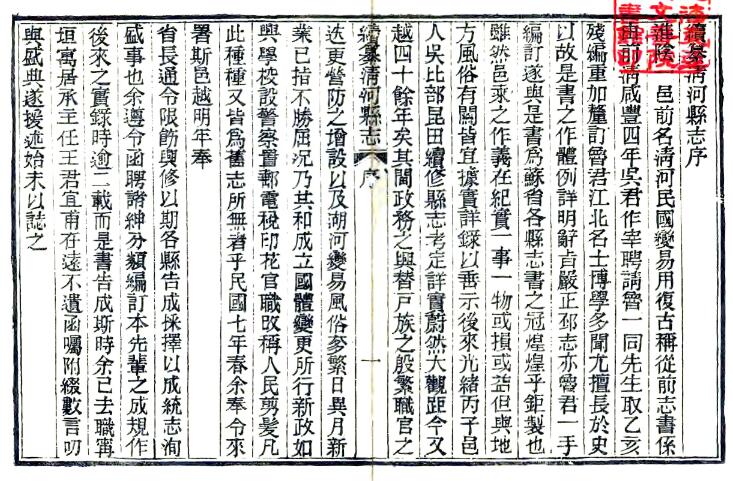 續纂清河縣志序
淮陰 邑前名清河民國變易用復古稱從前志書係
前清咸豐四年吳君作宰聘請魯一同先生取乙亥
殘編重加釐訂魯君江北名士博學多聞尤擅長於史
以故是書之作體例詳明辭旨嚴正邳志亦魯君一手
編訂遂與是書爲蘇省各縣志書之冠煌煌乎鉅製也
雖然邑乘之作義在紀實一事一物或損或益但與地
方風俗有關皆宜據實詳錄以垂示後來光緒丙子邑
人吳比部昆田續修縣志考定詳實蔚然大觀距今又
越四十餘年矣其間政務之興替戸族之殷繁職官之
續纂清河縣志 序 一
迭更營防之增設以及湖河變易風俗參繁日異月新
業已指不勝屈況乃共和成立國體變更所行新政如
興學校設警察置郵電稅印花官職改稱人民剪髮凡
此種種又皆爲舊志所無者乎民國七年春余奉令來
署斯邑越明年奉
省長通令限飭興修以期各縣告成採擇以成統志洵
盛事也余遵令函聘諸紳分類編訂本先輩之成規作
後來之實錄時逾二載而是書告成斯時余已去職寗
垣寓居承主任王君宜甫在遠不遺函囑附綴數言叨
與盛典遂援述始末以誌之